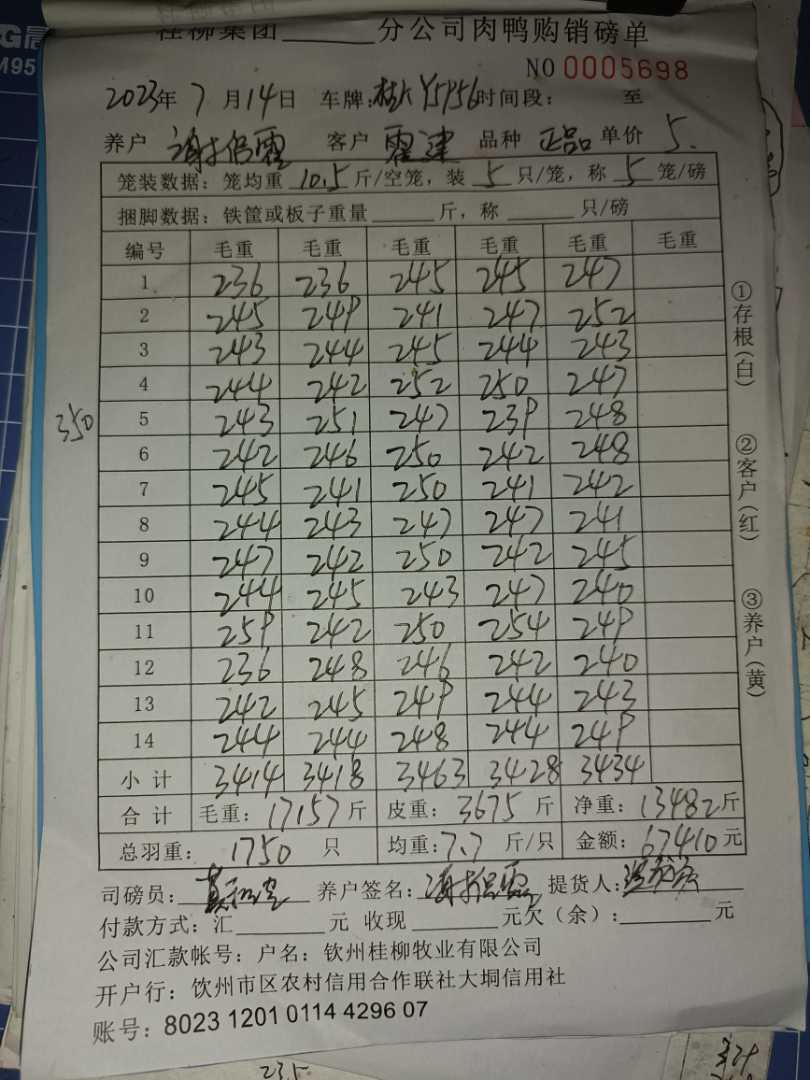 桂柳集团______分公司肉鸭购销磅单
NO 0005698
2023年 7 月 14日 车牌:桂K Y5956 时间段: 至
养户 谢 霞 客户 霍建 品种 正品 单价 5.
笼装数据: 笼均重 10.5 斤/空笼, 装 5 只/笼, 称 5 笼/磅
捆脚数据: 铁筐或板子重量______斤, 称______只/磅
编号 毛重 毛重 毛重 毛重 毛重 毛重
1 236 236 245 245 247
2 245 249 241 247 252
3 243 244 245 244 243
4 244 242 252 250 247
5 243 251 247 239 248
6 242 246 250 242 248
7 245 241 250 241 242
8 244 243 247 247 241
9 247 242 250 242 245
10 244 245 243 247 240
11 259 242 250 254 249
12 236 248 246 242 240
13 242 245 249 244 243
14 244 244 248 244 249
小计 3414 3418 3463 3428 3434
合计 毛重: 17157斤 皮重: 3675 斤 净重: 13482斤
总羽重: 1750 只 均重: 7.7 斤/只 金额: 67410元
司磅员: 养户签名: 谢 霞 提货人:
付款方式: 汇______元 收现______元欠(余):______元
公司汇款帐号: 户名: 钦州桂柳牧业有限公司
开户行: 饮州市区农村信用合作联社大垌信用社
账号: 8023 1201 0114 4296 07
350
①存根(白)
②客户(红)
③养户(黄)
235
329
M95